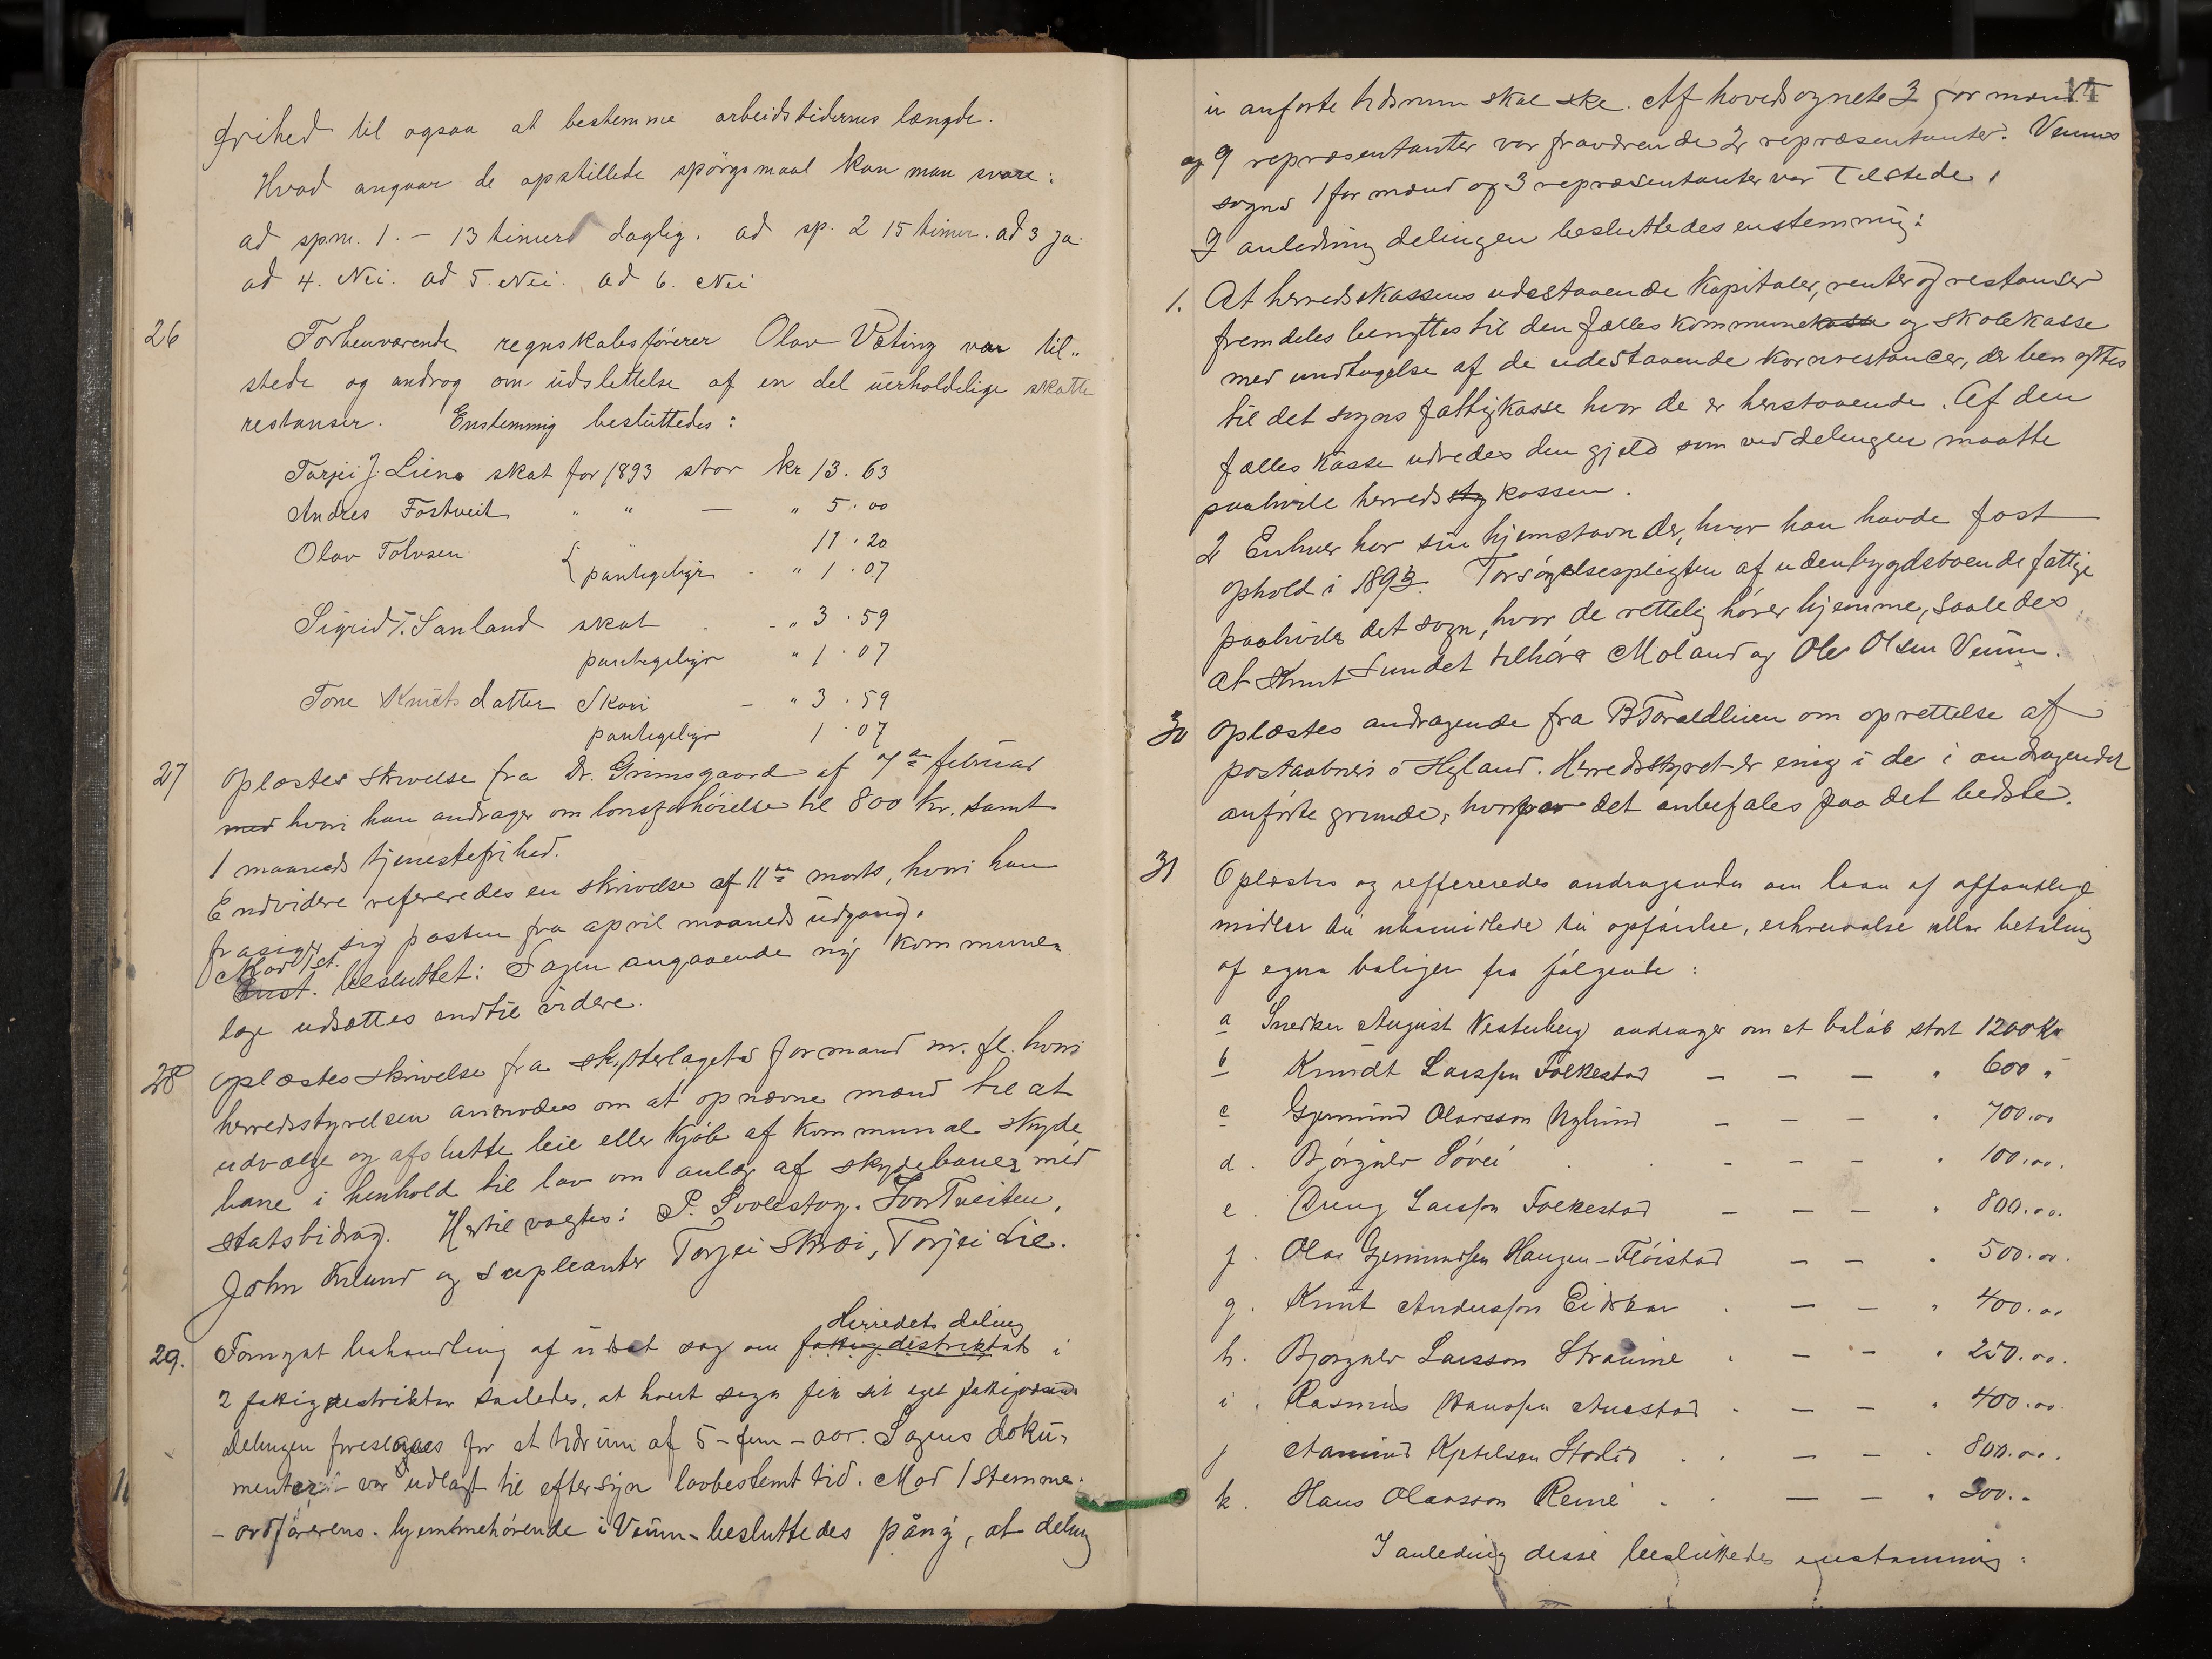 frihed til ogsaa at bestemme arbeidstidernes længde.
Hvad angaar de opstillede spörgsmaal kan man svare:
ad spm. 1. – 13 timers daglig. ad sp. 2 15 timer. ad 3 ja.
ad 4. Nei. ad 5. Nei. ad 6. Nei
26 Forhenværende regnskabsförer Olav Væting var til„
stede og androg om udslettelse af en del uerholdelige skatte
restanser. Enstemmig besluttedes:
Torjei J. Liena skat for 1893 stor kr 13.63
Andres Fostveit „ „ — „ 5.00
Olav Tolvsen { „ 11.20
pantegebyr - „ 1.07
Sigrid T. Sanland skat - „ 3.59
pantegebyr „ 1.07
Tone Knutsdatter Skori – „ 3.59
pantegebyr 1.07
27 Oplæstes skrivelse fra Dr. Grimsgaard af 7de februar
med hvori han andrager om lönsforhöielse til 800 kr. samt
1 maaneds tjenestefrihed.
Endvidere refereredes en skrivelse af 11te marts, hvori han
frasiger sig posten fra april maaneds udgang.
Mod 1 st.
Enst. besluttet: Sagen angaaende ny kommune„
læge udsættes indtil videre.
28 Oplæstes skrivelse fra skytterlagets formand m. fl. hvori
herredsstyrelsen anmodes om at opnævne mænd til at
udvælge og afslutte leie eller kjöb af kommunal skyde
bane i henhold til lov om anlæg af skydebaner med
statsbidrag. Hertil valgtes: P. Svolestog. Ivar Tveiten,
John Kilund og supleanter Torjei Skræi, Torjei Lie.
Herredets deling
29. Fornyet behandling af udsat sag om fattigdistriktets i
2 fattigdestrikter saaledes, at hvert sogn fik sit eget fattigvæsen
Delingen foreslaaes for et tidsrum af 5 – fem – aar. Sagens doku„
menter – var udlagt til eftersyn lovbestemt tid. Mod 1 stemme
– ordförerens. hjemmehörende i Veum – besluttedes påny, at deling
14
in anforte tidsrum skal ske. Af hovedsognets 3 formænd
og 9 repræsentanter var fraværende 2 repræsentanter. Veums
sogns 1 formænd og 3 repræsentanter var tilstede.
I anledning delingen besluttedes enstemmig:
1. At herredskassens udestaaende kapitaler, renter og restanser
fremdeles benyttes til den fælles kommunekasse og skolekasse
med undtagelse af de udestaaende kornrestancer, der benyttes
til det sogns fattigkasse hvor de er henstaaende. Af den
fælles kasse udredes den gjeld som ved delingen maatte
paahvile herredsstykassen.
2 Enhver har sin hjemstavn der, hvor han havde fast
ophold i 1893. Forsörgelsespligten af udenbygdsboende fattige
paahviler det sogn, hvor de rettelig hörer hjemme, saaledes
at Knut Sundet tilhörer Moland og Ole Olsen Veum.
30 Oplæstes andragende fra B Toraldlien om oprettelse af
postaabneri i Hyland. Herredsstyret er enig i de i andragendet
anförte grunde, hvorpaa det anbefales paa det bedste.
31 Oplæstes og reffereredes andragender om laan af offentlige
midler til ubemidlede til opförelse, erhvervelse eller betaling
af egne boliger fra fölgende:
a Snedker August Vesterberg andrager om et belöb stort 1200 Kr
b Knudt Larssen Folkestad – – – „ 600 „
c Gjermund Olavsson Nylund – – – „ 700.00
d. Björgulv Lövei . . – – – „ 100.00.
e. Dreng Larsson Folkestad – – – „ 800.00.
f. Olav Gjermundsen Haugen – Flöistad – – „ 500.00.
g. Knut Anderssen Eidskar . – – „ 400.00
h. Bjorgulv Larsson Straume . – – „ 250.00.
i. Rasmus Hanssen Aarstad . – – „ 400.00.
j Aamund Kjetelsen Storlid . . – – „ 800.00.
k. Hans Olavsson Reine . . – – „ 300.-
I anledning disse besluttedes enstemmig: